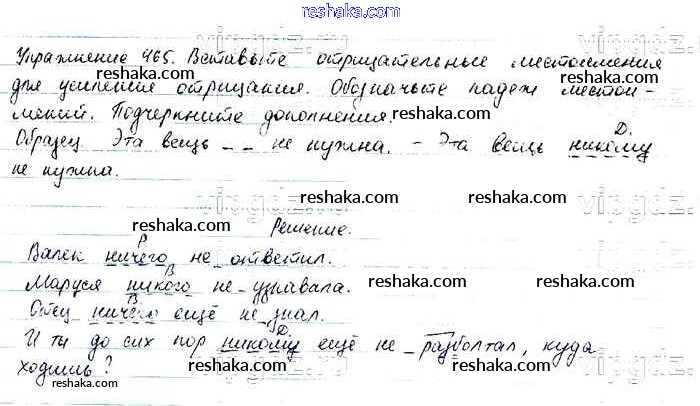 reshaka.com
Упражнение 465. Вставьте отрицательные местоимения
для усиления отрицания. Обозначьте падеж местои-
мений. Подчеркните дополнения.
Образец Эта вещь -- не нужна. - Эта вещь никому
Д.
не нужна.
Решение.
Валек ничего не ответил.
Р
Маруся никого не узнавала.
В
Отец ничего ещё не знал.
В
И ты до сих пор никому ещё не разболтал, куда
Д.
ходишь?
reshaka.com
reshaka.com
reshaka.com
reshaka.com
reshaka.com
reshaka.com
reshaka.com
reshaka.com
reshaka.com
reshaka.com
reshaka.com
reshaka.com
reshaka.com